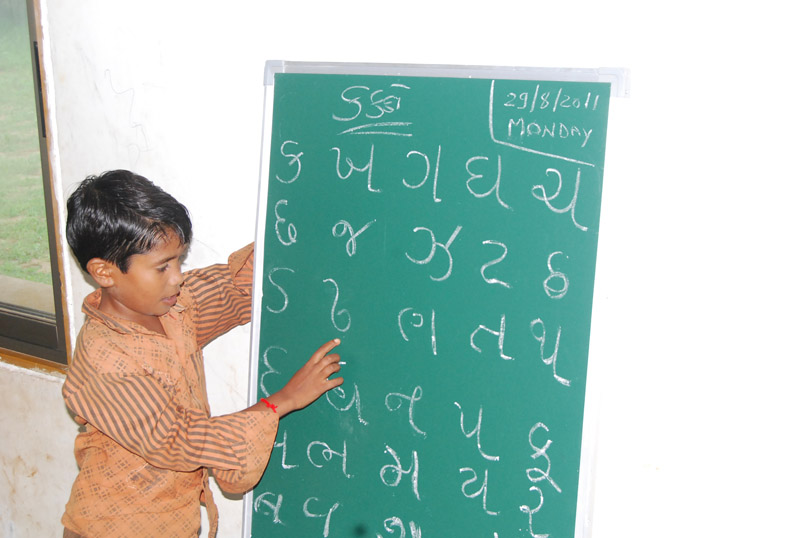 કક્કો
29/8/2011
MONDAY
ક ખ ગ ઘ ચ
છ જ ઝ ટ ઠ
ડ ઢ ણ ત થ
દ ધ ન પ ફ
બ ભ મ ય ર
લ વ શ